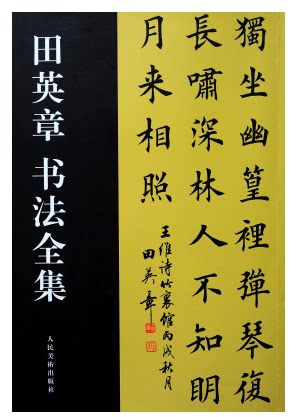 田英章 书法全集
人民美術出版社
獨坐幽篁裡彈琴復
長嘯深林人不知眀
月来相照
王维诗竹裏館丙戌秋月
田英章